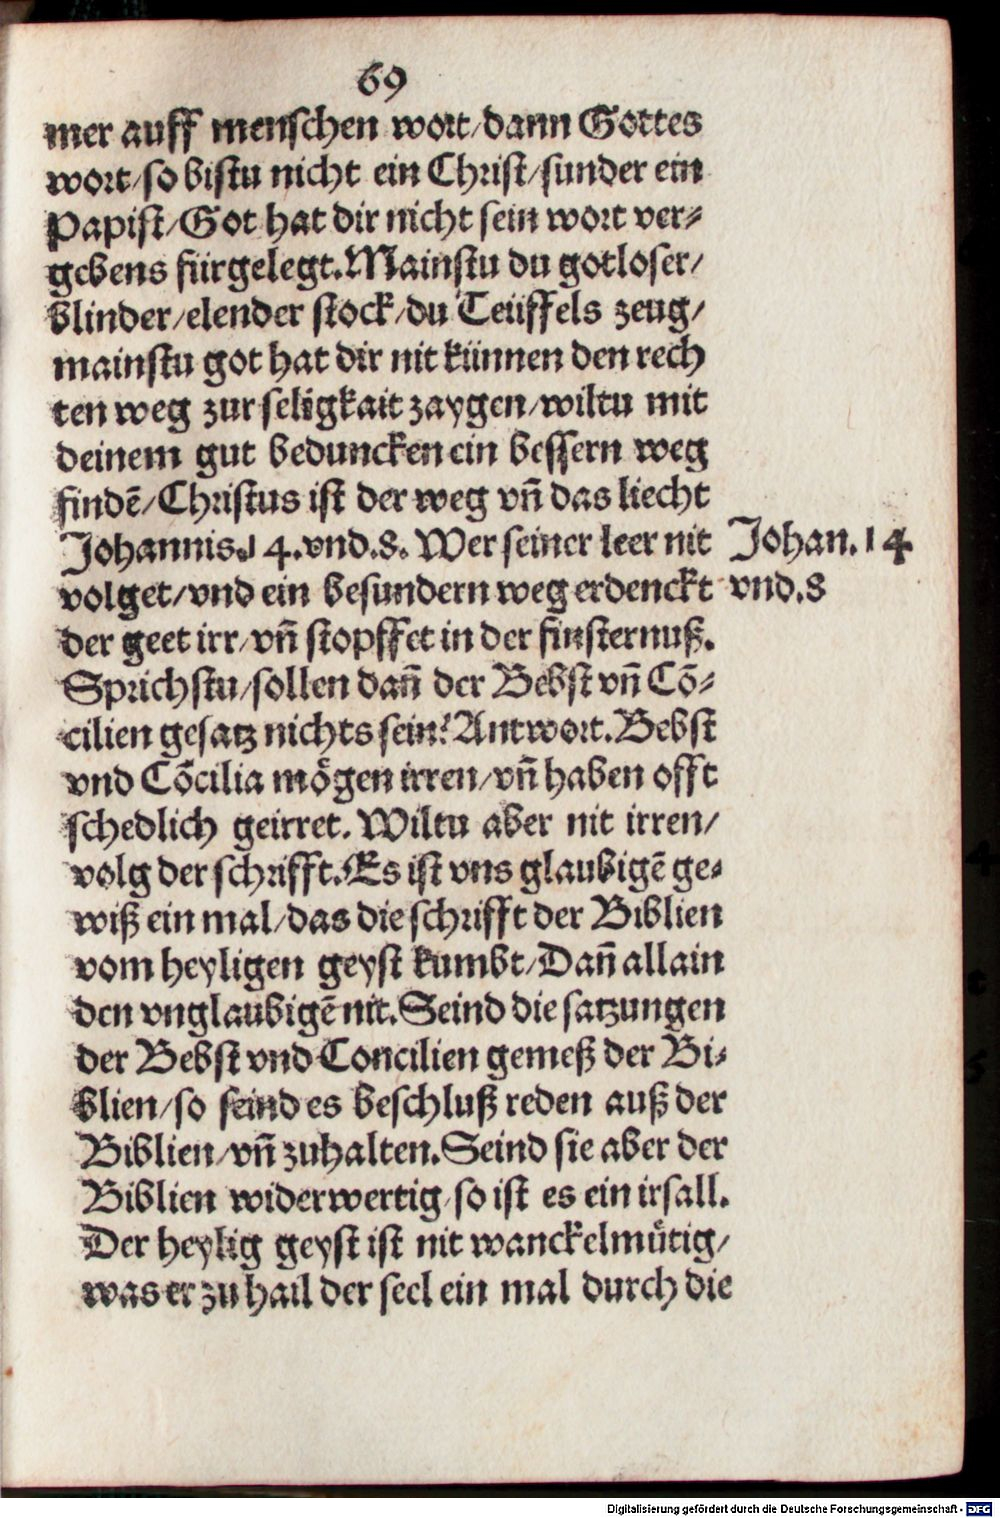 69
mer auff menschen wort/dann Gottes
wort/so bistu nicht ein Christ/sunder ein
Papist/Got hat dir nicht sein wort ver⸗
gebens fürgelegt.Mainstu du gotloser/
blinder/elender stock/du Teüffels zeug/
mainstu got hat dir nit künnen den rech
ten weg zur seligkait zaygen/wiltu mit
deinem gut beduncken ein bessern weg
findē/Christus ist der weg vñ das liecht
Johannis.14.vnd.8. Wer seiner leer nit
volget/vnd ein besundern weg erdenckt
der geet irr/vñ stopffet in der finsternuß.
Sprichstu/sollen dañ der Bebst vñ Cō⸗
cilien gesatz nichts sein? Antwort.Bebst
vnd Cōcilia mögen irren/vñ haben offt
schedlich geirret. Wiltu aber nit irren/
volg der schrifft.Es ist vns glaubigē ge⸗
wiß ein mal/das die schrifft der Biblien
vom heyligen geyst kumbt/Dañ allain
den vnglaubigē nit.Seind die satzungen
der Bebst vnd Concilien gemeß der Bi⸗
blien/so seind es beschluß reden auß der
Biblien/vñ zuhalten.Seind sie aber der
Biblien widerwertig/so ist es ein irsall.
Der heylig geyst ist nit wanckelmütig/
was er zu hail der seel ein mal durch die
Johan.14
vnd.8
Digitalisierung gefördert durch die Deutsche Forschungsgemeinschaft - DFG